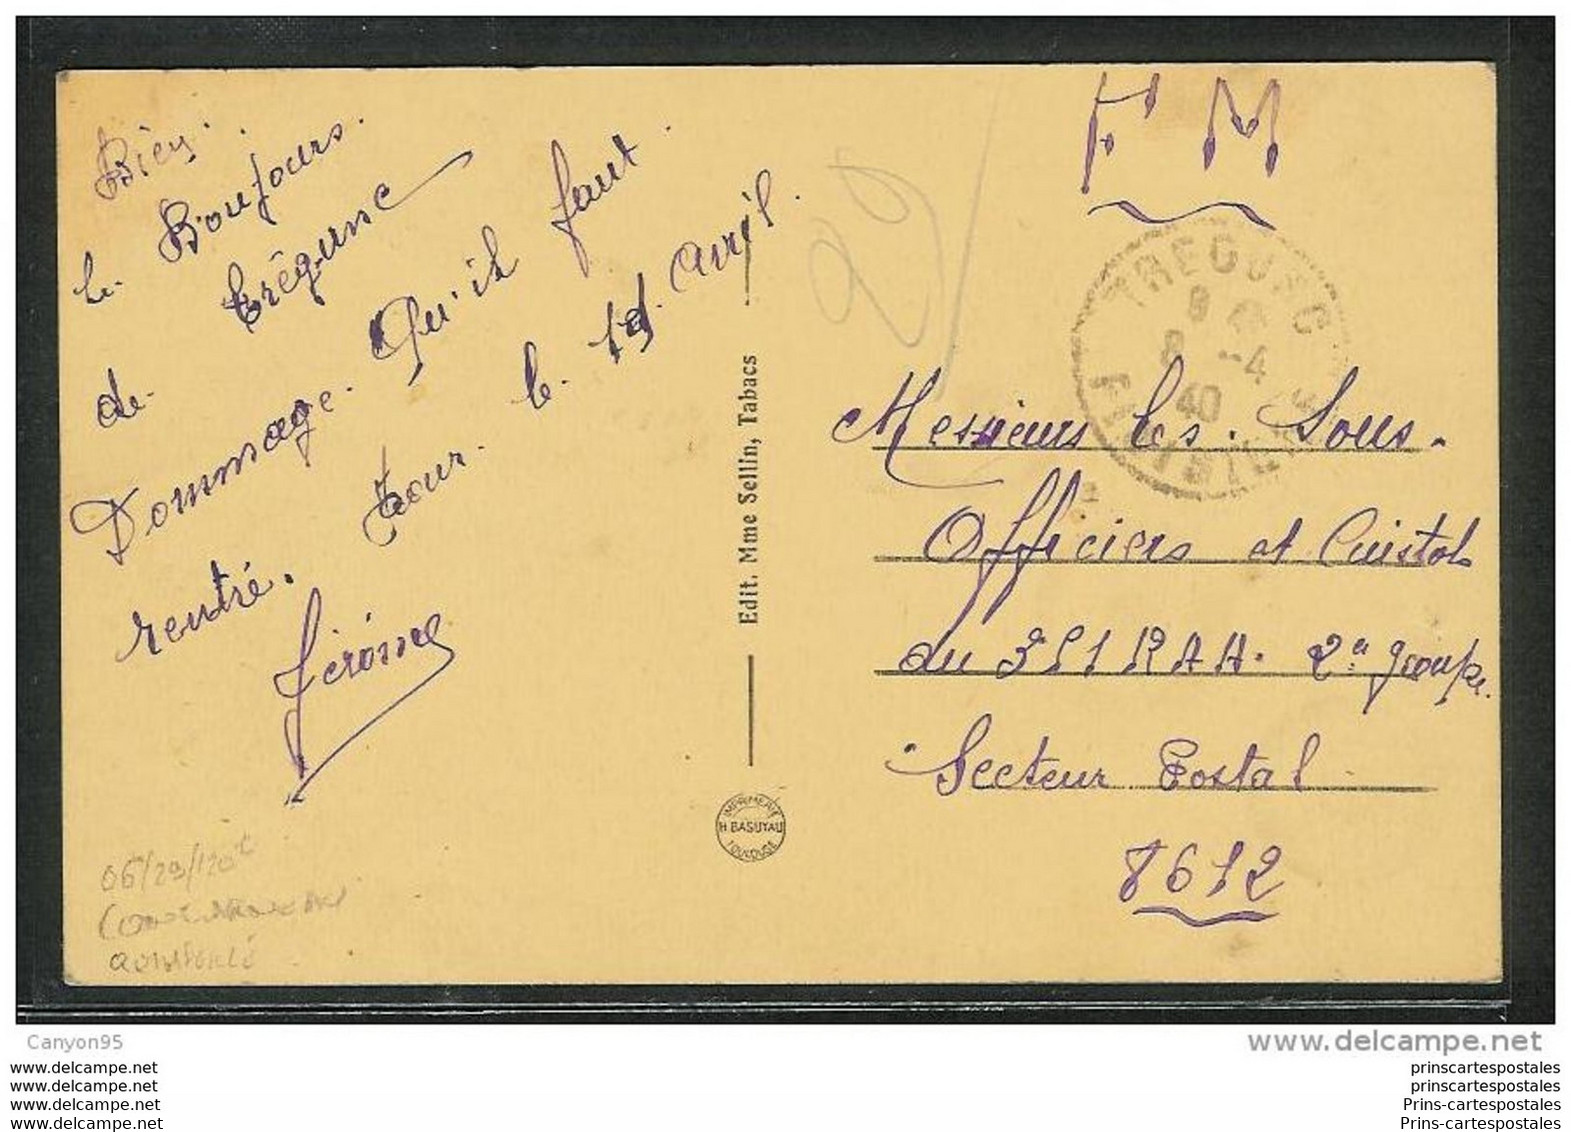 Bien.
le Bonjours.
de Trégunc
Dommage. Qu'il faut
rentré. Pour. le. 1d. avril.
Jérôme
Edit. Mme Sellin, Tabacs
IMPRIMERIE
H BASUYAU
TOULOUSE
F M
29
TREGUNC
8 45
8 -4
40
FINISTERE
Messieurs les. Sous-
Officiers et Cuistots
du 351 RAA. 2e groupe.
Secteur Postal
8612
06/29/120
Canyon95
www.delcampe.net
www.delcampe.com
www.delcampe.com
www.delcampe.com
www.delcampe.com
prinscartespostales
prinscartespostales
Prins-cartespostales
Prins-cartespostales